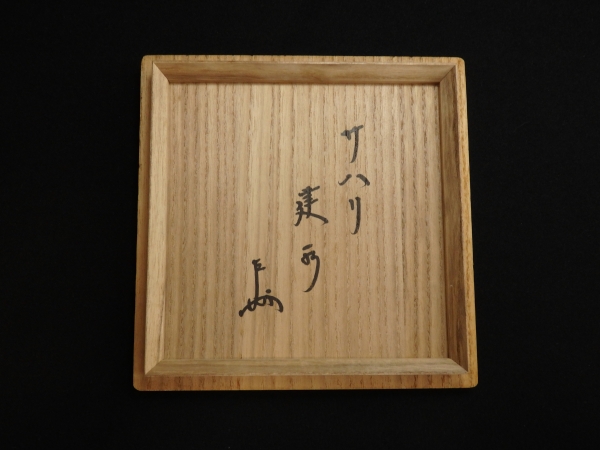 サハリ
建水